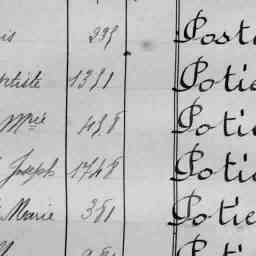 is 295 Posto
ptiste 1351 Potie
Mie 458 Potie
Joseph 1748 Potie
Marie 351 Potie
Potie